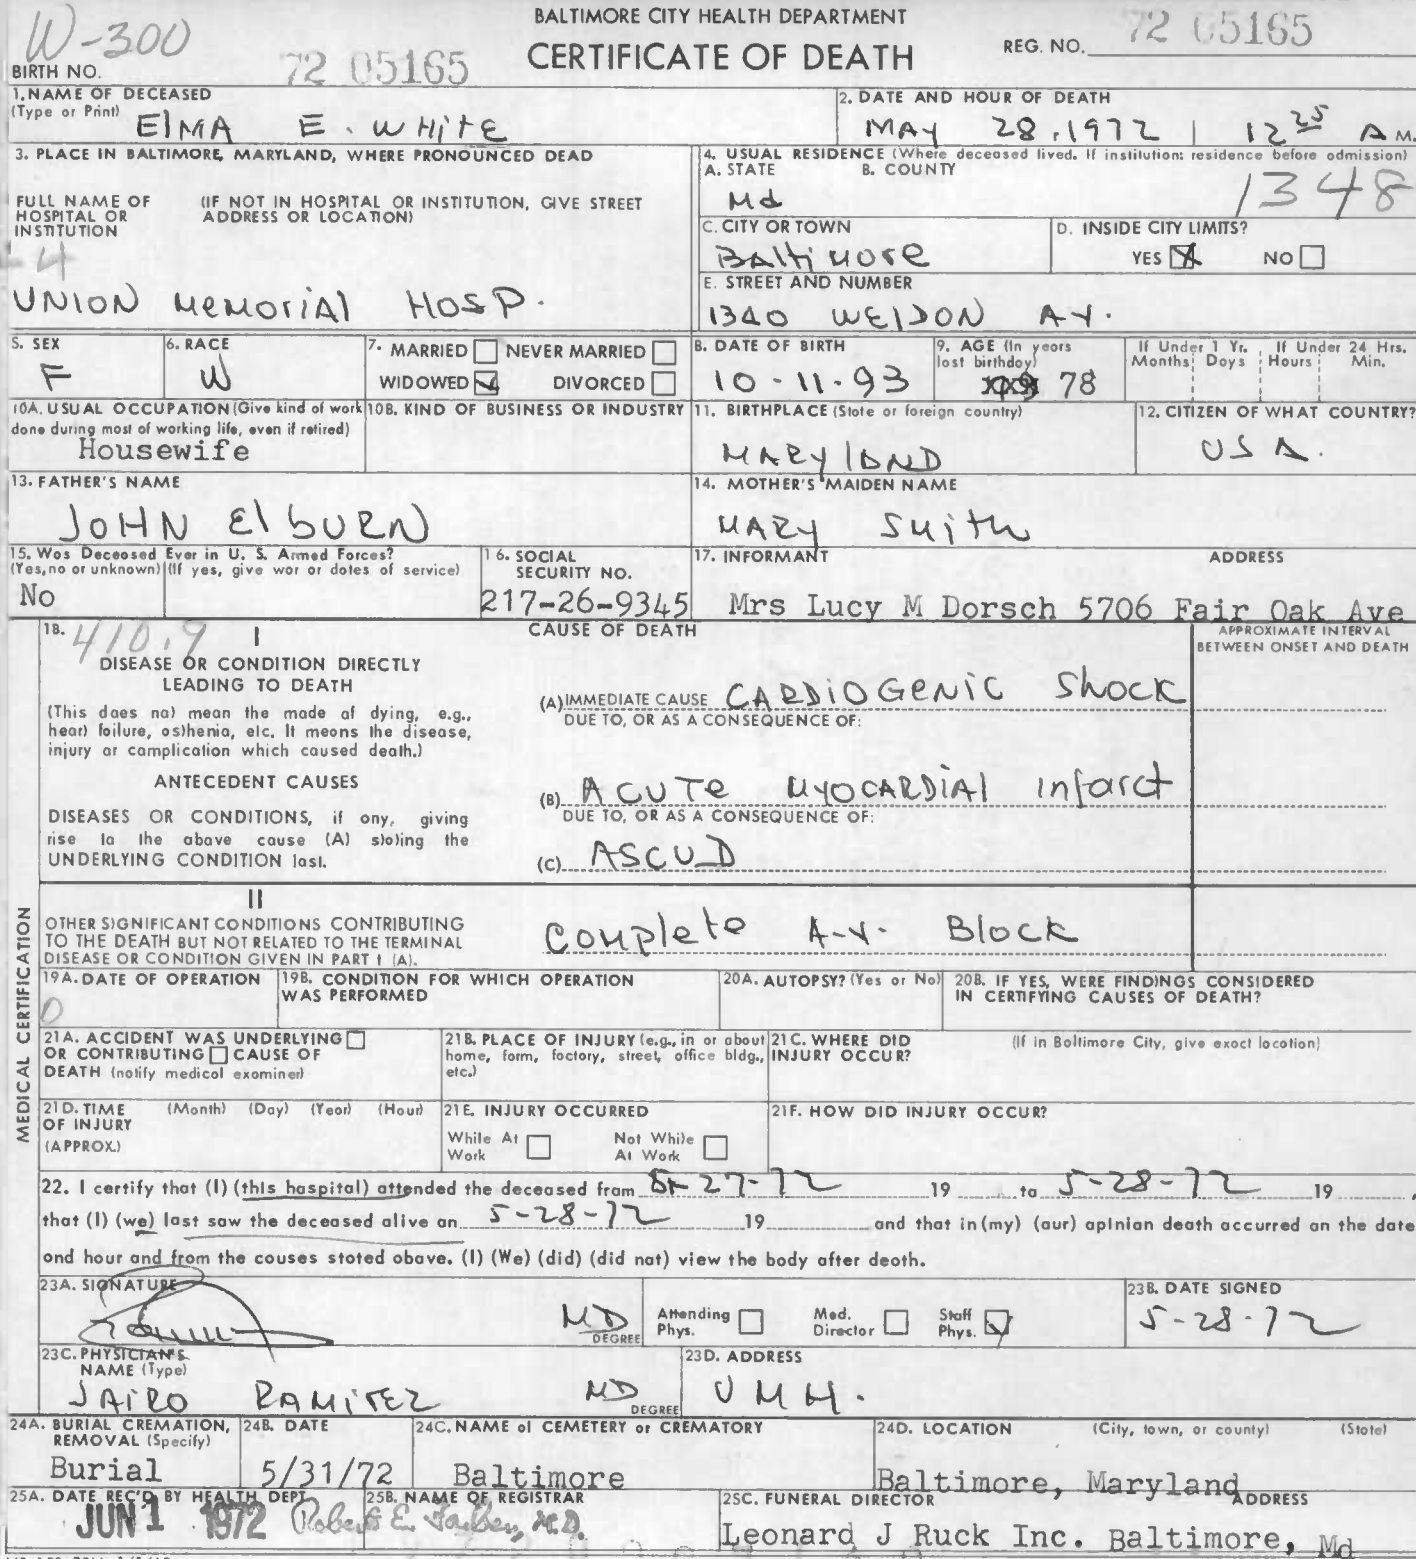 W-300
BALTIMORE CITY HEALTH DEPARTMENT
CERTIFICATE OF DEATH
REG. NO. 72 05165
BIRTH NO.
72 05165
1. NAME OF DECEASED
(Type or Print) ElMA E. WHItE
2. DATE AND HOUR OF DEATH
MAY 28, 1972 12 25 A M.
3. PLACE IN BALTIMORE, MARYLAND, WHERE PRONOUNCED DEAD
FULL NAME OF HOSPITAL OR INSTITUTION
(IF NOT IN HOSPITAL OR INSTITUTION, GIVE STREET ADDRESS OR LOCATION)
-4
UNION MeMoriAl HOSP.
4. USUAL RESIDENCE (Where deceased lived. If institution: residence before admission)
A. STATE B. COUNTY
Md 1348
C. CITY OR TOWN
BAltiMore
D. INSIDE CITY LIMITS?
YES NO
E. STREET AND NUMBER
1340 WElDON AV.
5. SEX
F
6. RACE
W
7. MARRIED NEVER MARRIED
WIDOWED DIVORCED
8. DATE OF BIRTH
10-11-93
9. AGE (In years
last birthday)
78
If Under 1 Yr. If Under 24 Hrs.
Months Days Hours Min.
10A. USUAL OCCUPATION (Give kind of work
done during most of working life, even if retired)
Housewife
10B. KIND OF BUSINESS OR INDUSTRY
11. BIRTHPLACE (State or foreign country)
MARYlAND
12. CITIZEN OF WHAT COUNTRY?
USA.
13. FATHER'S NAME
JOHN ElbURN
14. MOTHER'S MAIDEN NAME
MARY SMith
15. Was Deceased Ever in U. S. Armed Forces?
(Yes, no or unknown) (If yes, give war or dates of service)
No
16. SOCIAL
SECURITY NO.
217-26-9345
17. INFORMANT ADDRESS
Mrs Lucy M Dorsch 5706 Fair Oak Ave
18. 410.9 I
DISEASE OR CONDITION DIRECTLY
LEADING TO DEATH
(This does not mean the mode of dying, e.g.,
heart failure, asthenia, etc. It means the disease,
injury or complication which caused death.)
ANTECEDENT CAUSES
DISEASES OR CONDITIONS, if any, giving
rise to the above cause (A) stating the
UNDERLYING CONDITION last.
CAUSE OF DEATH
APPROXIMATE INTERVAL
BETWEEN ONSET AND DEATH
(A) IMMEDIATE CAUSE CARDioGeNiC Shock
DUE TO, OR AS A CONSEQUENCE OF:
(B) ACUTe MYOCARDiAl infarct
DUE TO, OR AS A CONSEQUENCE OF:
(C) ASCVD
II
OTHER SIGNIFICANT CONDITIONS CONTRIBUTING
TO THE DEATH BUT NOT RELATED TO THE TERMINAL
DISEASE OR CONDITION GIVEN IN PART I (A).
COMplete A-V. Block
MEDICAL CERTIFICATION
19A. DATE OF OPERATION
0
19B. CONDITION FOR WHICH OPERATION
WAS PERFORMED
20A. AUTOPSY? (Yes or No)
20B. IF YES, WERE FINDINGS CONSIDERED
IN CERTIFYING CAUSES OF DEATH?
21A. ACCIDENT WAS UNDERLYING
OR CONTRIBUTING CAUSE OF
DEATH (notify medical examiner)
21B. PLACE OF INJURY (e.g., in or about
home, farm, factory, street, office bldg.,
etc.)
21C. WHERE DID
INJURY OCCUR?
(If in Baltimore City, give exact location)
21D. TIME (Month) (Day) (Year) (Hour)
OF INJURY
(APPROX.)
21E. INJURY OCCURRED
While At Work Not While At Work
21F. HOW DID INJURY OCCUR?
22. I certify that (I) (this hospital) attended the deceased from 5-27-72 19 to 5-28-72 19 ,
that (I) (we) last saw the deceased alive on 5-28-72 19 and that in (my) (our) opinion death occurred on the date
and hour and from the causes stated above. (I) (We) (did) (did not) view the body after death.
23A. SIGNATURE
MD
DEGREE
Attending Phys. Med. Director Staff Phys.
23B. DATE SIGNED
5-28-72
23C. PHYSICIAN'S
NAME (Type)
JAIRO RAMirEZ MD
DEGREE
23D. ADDRESS
UMH.
24A. BURIAL CREMATION,
REMOVAL (Specify)
Burial
24B. DATE
5/31/72
24C. NAME of CEMETERY or CREMATORY
Baltimore
24D. LOCATION (City, town, or county) (State)
Baltimore, Maryland
25A. DATE REC'D BY HEALTH DEPT.
JUN 1 1972
25B. NAME OF REGISTRAR
Robert E. Farber, M.D.
25C. FUNERAL DIRECTOR ADDRESS
Leonard J Ruck Inc. Baltimore, Md